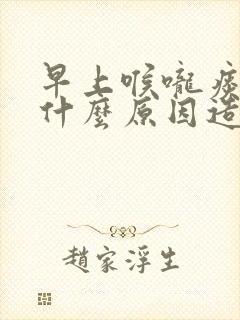 早上喉嚨痰
什麼原因造
趙家浮生